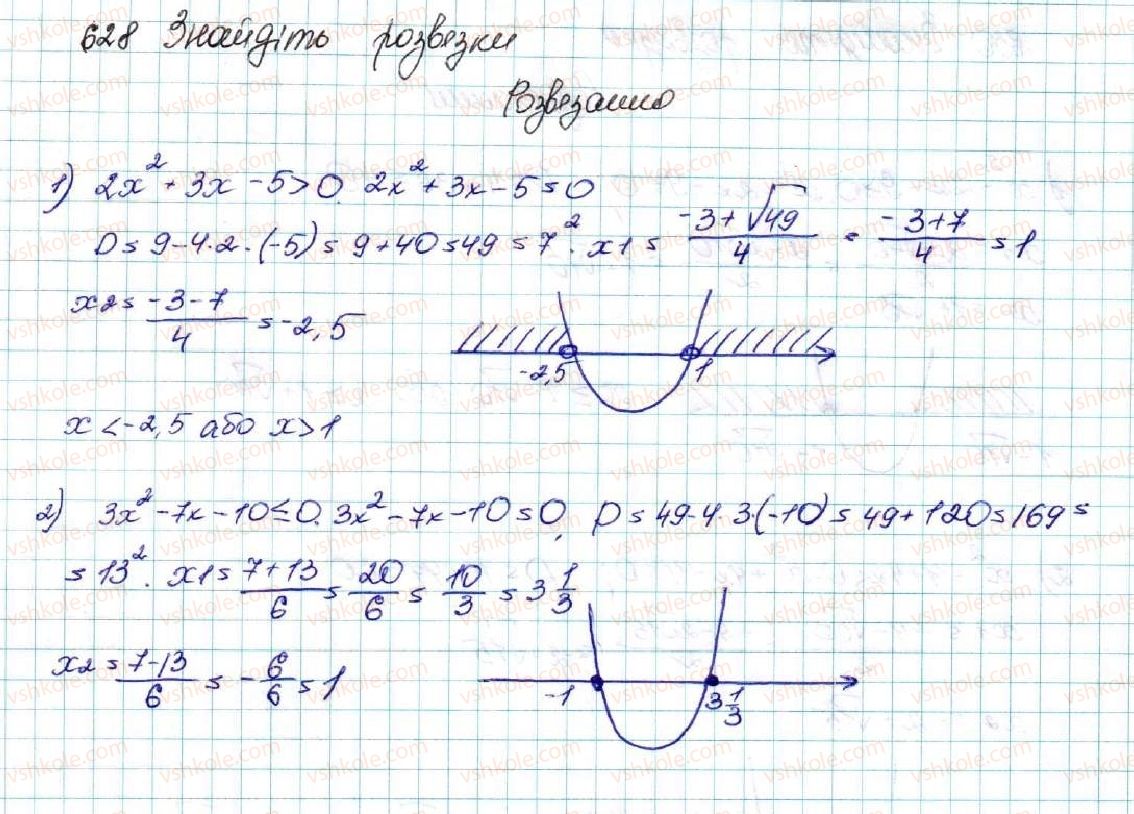 628 Знайдіть розвезки
Розвезанно
1) 2x² + 3x - 5 > 0. 2x² + 3x - 5 = 0
D = 9 - 4·2·(-5) = 9 + 40 = 49 = 7². x1 = (-3 + √49)/4 = (-3 + 7)/4 = 1
x2 = (-3 - 7)/4 = -2,5
-2,5 1
x < -2,5 або x > 1
2) 3x² - 7x - 10 ≤ 0. 3x² - 7x - 10 = 0, D = 49 - 4·3·(-10) = 49 + 120 = 169 =
= 13². x1 = (7 + 13)/6 = 20/6 = 10/3 = 3 1/3
x2 = (7 - 13)/6 = -6/6 = 1
-1 3 1/3